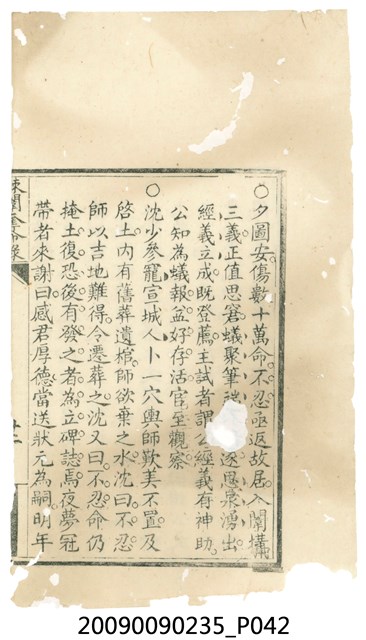 〇夕圖安。傷數十萬命。不忍。亟返故居。入闈搆
三義。正值思窘。蟻聚筆端。遂思泉湧出。
經義立成。既登薦。主試者謂公經義有神助。
公知為蟻報。益好存活。官至觀察。
〇沈少參寵。宣城人。卜一穴。輿師歎美不置。及
啓土。內有舊葬遺棺。師欲棄之水。沈曰。不忍。
師以吉地難得。令遷葬之。沈又曰。不忍。命仍
掩土。復恐後有發之者。為立碑誌焉。夜夢冠
帶者來謝曰。感君厚德。當送狀元為嗣。明年
20090090235_P042